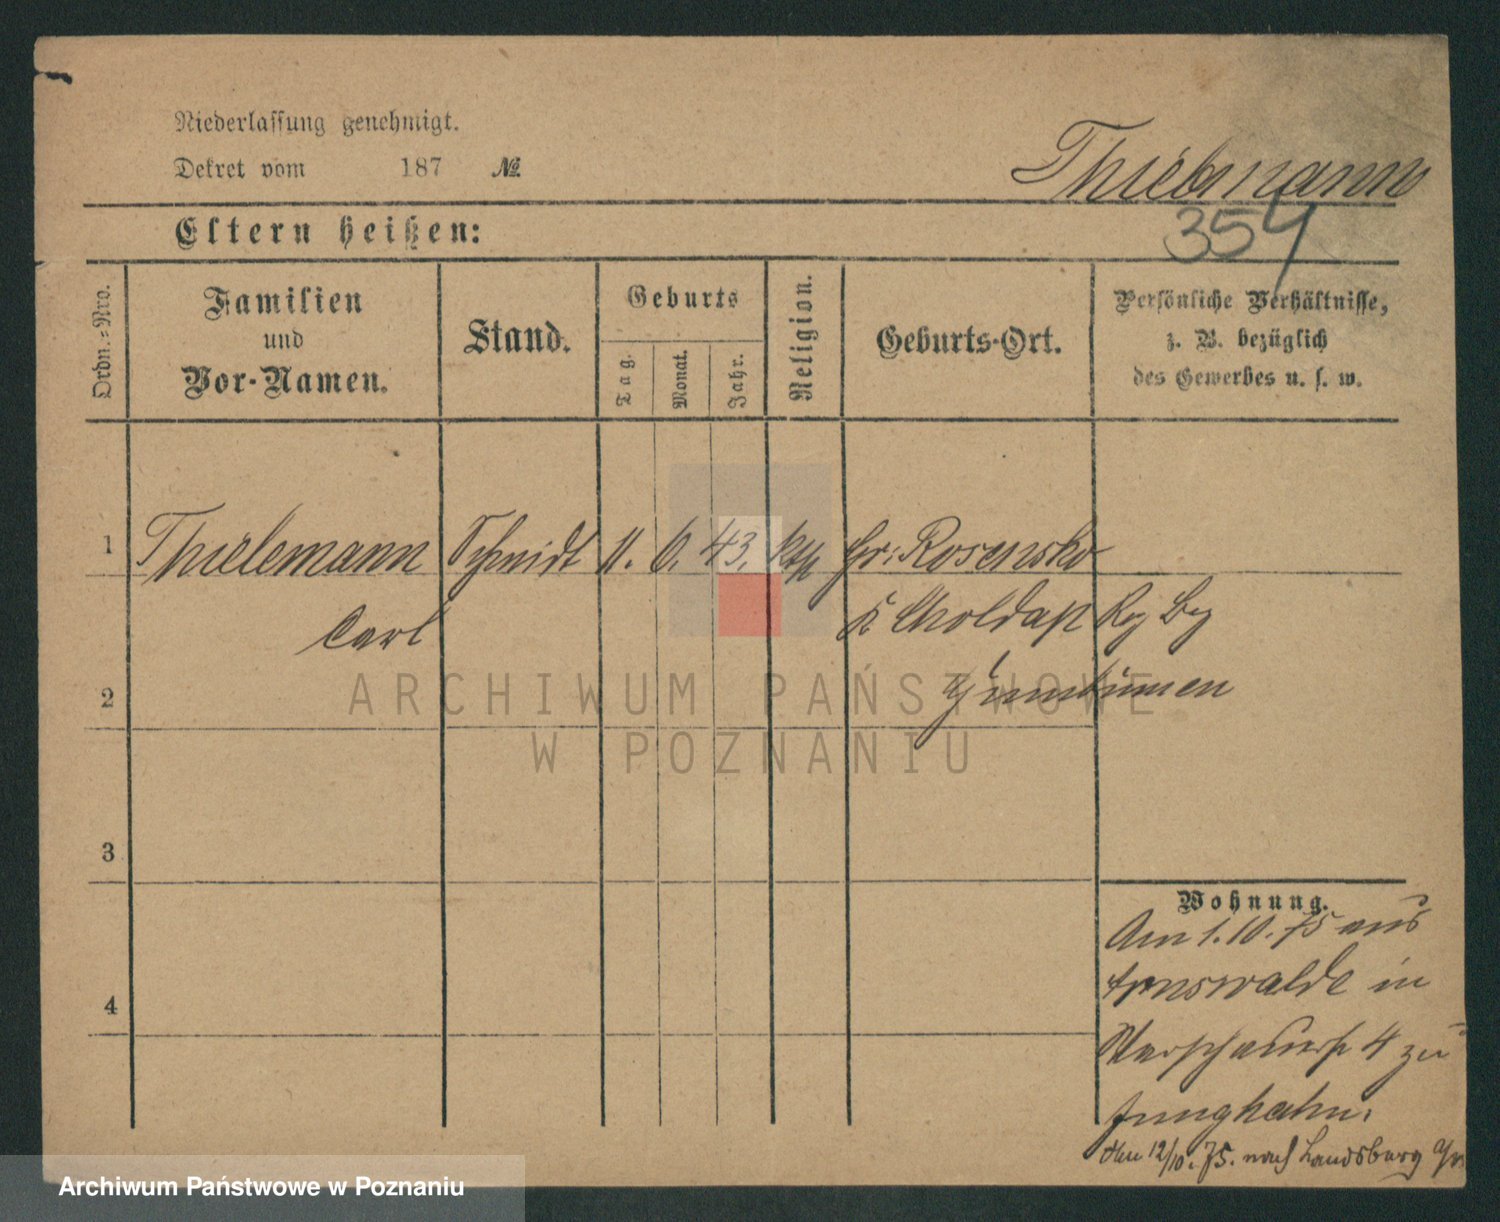 Niederlassung genehmigt.
Dekret vom 187 №
Thielemann
354
Eltern heißen:
Ordn.-Nro.
Familien
und
Vor-Namen.
Stand.
Geburts
Tag.
Monat.
Jahr.
Religion.
Geburts-Ort.
Persönliche Verhältnisse,
z. B. bezüglich
des Gewerbes u. s. w.
1 Thielemann Schmidt 11. 6. 43. kth Gr: Rosensko
Carl K Choldap Reg Bez
2 Gumbinnen
ARCHIWUM PAŃSTWOWE
W POZNANIU
3
Wohnung.
Am 1.10.75 aus
Arnswalde in
4
4 zu
Junghahn.
Am 12/10.75. nach Landsburg
Archiwum Państwowe w Poznaniu